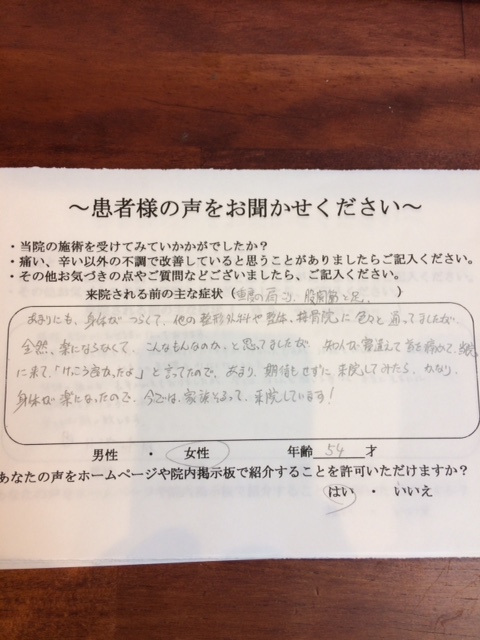 ～患者様の声をお聞かせください～
・当院の施術を受けてみていかかがでしたか？
・痛い、辛い以外の不調で改善していると思うことがありましたらご記入ください。
・その他お気づきの点やご質問などございましたら、ご記入ください。
来院される前の主な症状（重度の肩コリ、股関節と足、）
あまりにも、身体がつらくて、他の整形外科や整体、接骨院に色々と通ってましたが、
全然、楽にならなくて、こんなもんなのか、と思ってましたが、知人が寝違えて首を痛めて、
に来て、「けっこう良かったよ」と言ってたので、あまり、期待もせずに来院してみたら、かなり、
身体が楽になったので、今では、家族そろって、来院しています！
男性 ・ 女性 年齢 54 才
あなたの声をホームページや院内掲示板で紹介することを許可いただけますか？
はい ・ いいえ